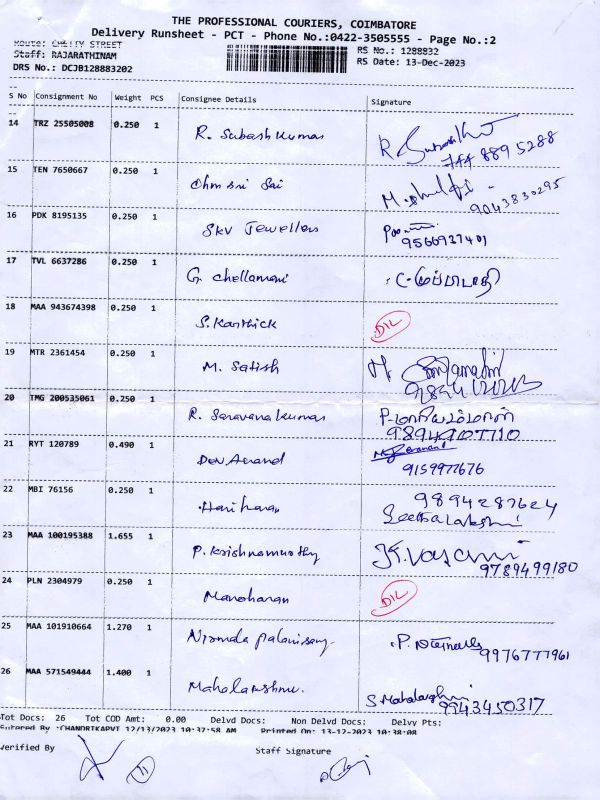 THE PROFESSIONAL COURIERS, COIMBATORE
Delivery Runsheet - PCT - Phone No.:0422-3505555 - Page No.:2
Route: CHETTY STREET
RS No.: 1288832
Staff: RAJARATHINAM
RS Date: 13-Dec-2023
DRS No.: DCJB128883202
S No Consignment No Weight PCS Consignee Details Signature
14 TRZ 25505008 0.250 1 R. Subash Kumar
8895288
15 TEN 7650667 0.250 1 Ohm Sri Sai
9043830295
16 PDK 8195135 0.250 1 SKV Jewellers
9566937401
17 TVL 6637286 0.250 1 G. Chellamani
18 MAA 943674398 0.250 1 S. Karthick DIL
19 MTR 2361454 0.250 1 M. Satish
20 TMG 200535061 0.250 1 R. Saravana kumar
21 RYT 120789 0.490 1 Dev Anand
9159977676
22 MBI 76156 0.250 1 Hari haran 9894287624
Seethalakshmi
23 MAA 100195388 1.655 1 P. Krishnamurthy
9789499180
24 PLN 2304979 0.250 1 Manoharan DIL
25 MAA 101910664 1.270 1 Nirmala Palanisamy
9976777961
26 MAA 571549444 1.400 1 Mahalakshmi S. Mahalakshmi
9943450317
Tot Docs: 26 Tot COD Amt: 0.00 Delvd Docs: Non Delvd Docs: Delvy Pts:
Entered By :CHANDRIKAPVT 12/13/2023 10:37:58 AM Printed On: 13-12-2023 10:38:08
Verified By Staff Signature